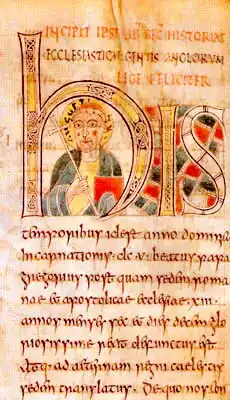 INCIPIT IPSIUS SEC HISTORIAE
ECCLESIASTICAE GENTIS ANGLORUM
LEGE FELICITER
hIS
temporibus id est anno dominicae
incarnationis dc v beatus papa
gregorius post quam sedem roma
nae & apostolicae ecclesiae xiii
annos menses sex & dies decem glo
riosissime rexit defunctus est
atq: ad aeternam regni caelestis
sedem translatus. De quo nos